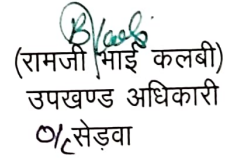 (रामजी भाई कलबी)
उपखण्ड अधिकारी
O/c सेड़वा